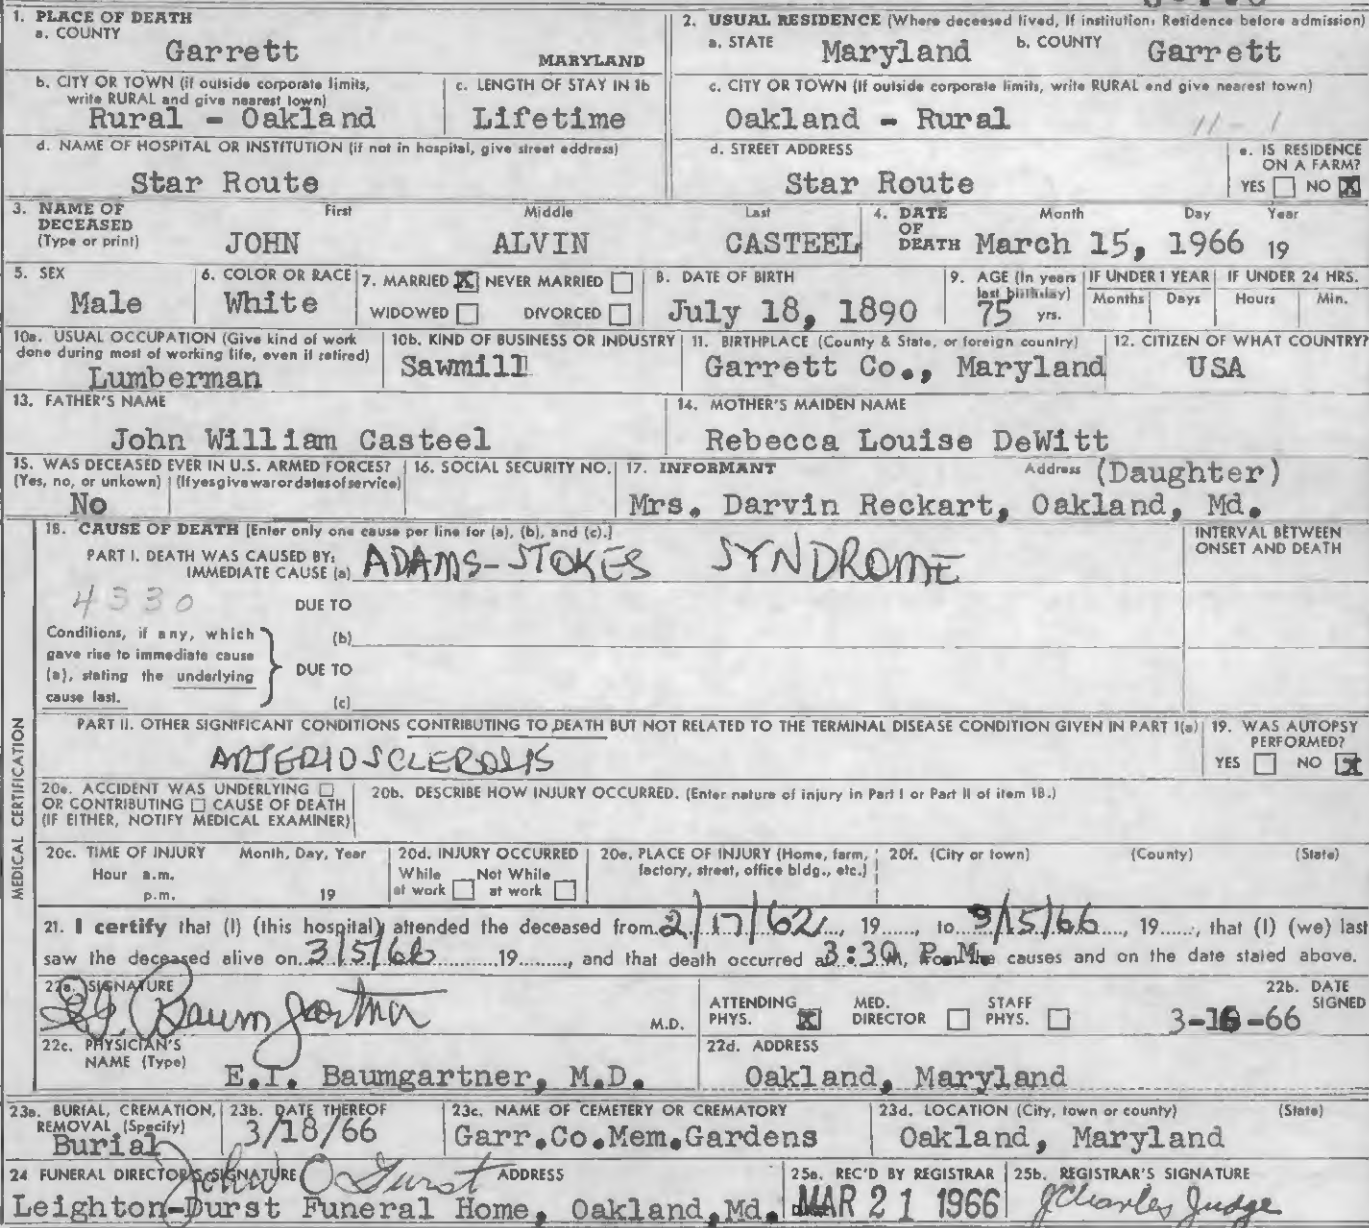 1. PLACE OF DEATH
a. COUNTY
Garrett MARYLAND
2. USUAL RESIDENCE (Where deceased lived, If institution: Residence before admission)
a. STATE Maryland b. COUNTY Garrett
b. CITY OR TOWN (if outside corporate limits, write RURAL and give nearest town)
Rural - Oakland
c. LENGTH OF STAY IN 1b
Lifetime
c. CITY OR TOWN (If outside corporate limits, write RURAL and give nearest town)
Oakland - Rural 11-1
d. NAME OF HOSPITAL OR INSTITUTION (if not in hospital, give street address)
Star Route
d. STREET ADDRESS
Star Route
e. IS RESIDENCE ON A FARM?
YES NO X
3. NAME OF DECEASED (Type or print) First Middle Last
JOHN ALVIN CASTEEL
4. DATE OF DEATH Month Day Year
March 15, 1966 19
5. SEX
Male
6. COLOR OR RACE
White
7. MARRIED X NEVER MARRIED
WIDOWED DIVORCED
8. DATE OF BIRTH
July 18, 1890
9. AGE (In years last birthday)
75 yrs.
IF UNDER 1 YEAR Months Days
IF UNDER 24 HRS. Hours Min.
10a. USUAL OCCUPATION (Give kind of work done during most of working life, even if retired)
Lumberman
10b. KIND OF BUSINESS OR INDUSTRY
Sawmill
11. BIRTHPLACE (County & State, or foreign country)
Garrett Co., Maryland
12. CITIZEN OF WHAT COUNTRY?
USA
13. FATHER'S NAME
John William Casteel
14. MOTHER'S MAIDEN NAME
Rebecca Louise DeWitt
15. WAS DECEASED EVER IN U.S. ARMED FORCES?
(Yes, no, or unkown) (If yes give war or dates of service)
No
16. SOCIAL SECURITY NO.
17. INFORMANT Address (Daughter)
Mrs. Darvin Reckart, Oakland, Md.
MEDICAL CERTIFICATION
18. CAUSE OF DEATH [Enter only one cause per line for (a), (b), and (c).]
INTERVAL BETWEEN ONSET AND DEATH
PART I. DEATH WAS CAUSED BY:
IMMEDIATE CAUSE (a) ADAMS-STOKES SYNDROME
4330 DUE TO
Conditions, if any, which gave rise to immediate cause (a), stating the underlying cause last.
(b)
DUE TO
(c)
PART II. OTHER SIGNIFICANT CONDITIONS CONTRIBUTING TO DEATH BUT NOT RELATED TO THE TERMINAL DISEASE CONDITION GIVEN IN PART 1(a)
ARTERIOSCLEROSIS
19. WAS AUTOPSY PERFORMED?
YES NO X
20a. ACCIDENT WAS UNDERLYING
OR CONTRIBUTING CAUSE OF DEATH
(IF EITHER, NOTIFY MEDICAL EXAMINER)
20b. DESCRIBE HOW INJURY OCCURRED. (Enter nature of injury in Part I or Part II of item 18.)
20c. TIME OF INJURY Month, Day, Year
Hour a.m.
p.m. 19
20d. INJURY OCCURRED
While at work Not While at work
20e. PLACE OF INJURY (Home, farm, factory, street, office bldg., etc.)
20f. (City or town) (County) (State)
21. I certify that (I) (this hospital) attended the deceased from 2/17/62, 19......, to 3/15/66, 19......, that (I) (we) last
saw the deceased alive on 3/5/66 19......, and that death occurred at 3:30 P.M., from the causes and on the date stated above.
22a. SIGNATURE
E.I. Baumgartner M.D.
ATTENDING PHYS. X MED. DIRECTOR STAFF PHYS.
22b. DATE SIGNED
3-16-66
22c. PHYSICIAN'S NAME (Type)
E.I. Baumgartner, M.D.
22d. ADDRESS
Oakland, Maryland
23a. BURIAL, CREMATION, REMOVAL (Specify)
Burial
23b. DATE THEREOF
3/18/66
23c. NAME OF CEMETERY OR CREMATORY
Garr.Co.Mem.Gardens
23d. LOCATION (City, town or county) (State)
Oakland, Maryland
24 FUNERAL DIRECTOR'S SIGNATURE ADDRESS
John O Durst
Leighton-Durst Funeral Home, Oakland, Md.
25a. REC'D BY REGISTRAR
MAR 21 1966
25b. REGISTRAR'S SIGNATURE
J Charles Judge